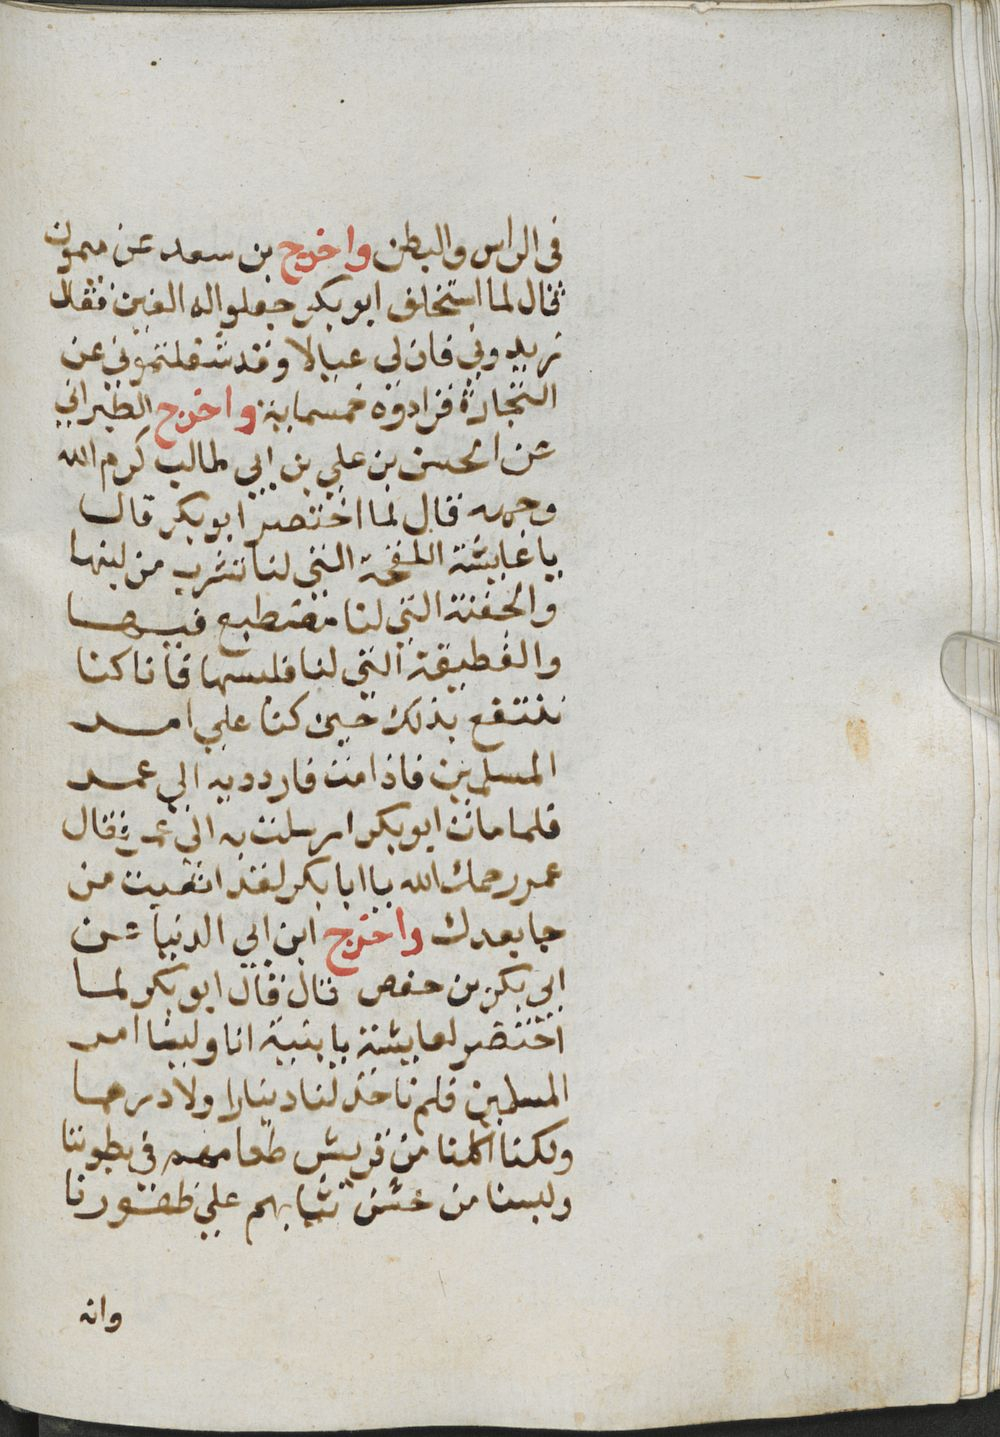 في الراس والبطن واخرج بن سعد عن ميمون
قال لما استخلف ابو بكر جعلوا له الفين فقال
زيدوني فان لي عيالا وقد شغلتموني عن
التجارة فزادوه خمسماية واخرج الطبراني
عن الحسن بن علي بن ابي طالب كرم الله
وجهه قال لما احتضر ابو بكر قال
يا عايشة اللقحة التي لنا نشرب من لبنها
والجفنة التي لنا نصطبغ فيها
والقطيفة التي لنا نلبسها فانا كنا
ننتفع بذلك حين كنا علي امر
المسلمين فاذا مت فاردديه الي عمر
فلما مات ابو بكر ارسلت به الي عمر فقال
عمر رحمك الله يا ابا بكر لقد اتعبت من
جا بعدك واخرج ابن ابي الدنيا عن
ابي بكر بن حفص قال قال ابو بكر لما
احتضر لعايشة يا بنية انا ولينا امر
المسلمين فلم ناخذ لنا دينارا ولا درهما
ولكنا اكلنا من قريش طعامهم في بطوننا
ولبسنا من خشن ثيابهم علي ظهورنا
وانه